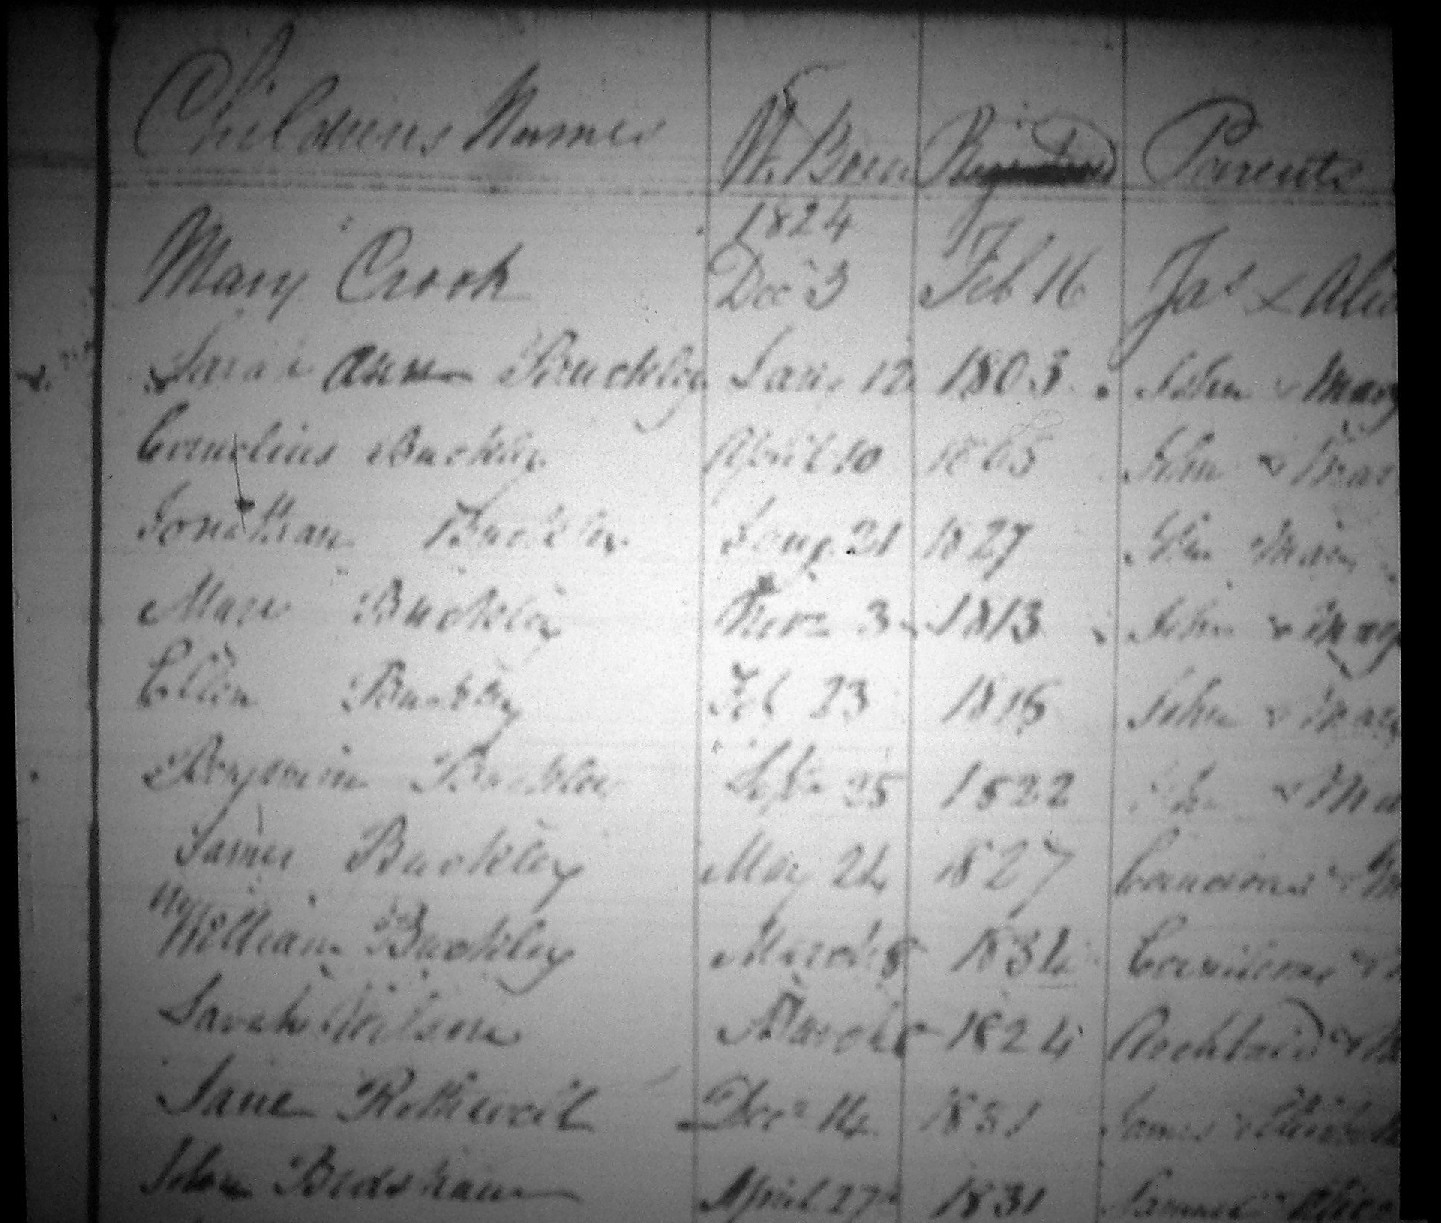 Childrens Names W. Born Parents
1824
Mary Crook Dec 3 Feb 16 Jas & Alice
Sarah Ann Buckley Jany 12 1803 John & Mary
Cornelius Buckley April 10 John & Mar
Jonathan Buckley Jany 21 1827 John Mary
Mary Buckley Novr 3 1813 John & Mary
Ellen Buckley Feb 23 John & Mary
Benjamin Buckley Sepr 25 1822 John & Ma
James Buckley May 24 1827
William Buckley March 8 1834
Sarah Wilson March 1824
Jane Rothwell Decr 14 1831 James & Elizabeth
John Bedshaw April 27th 1831 Samuel Alice